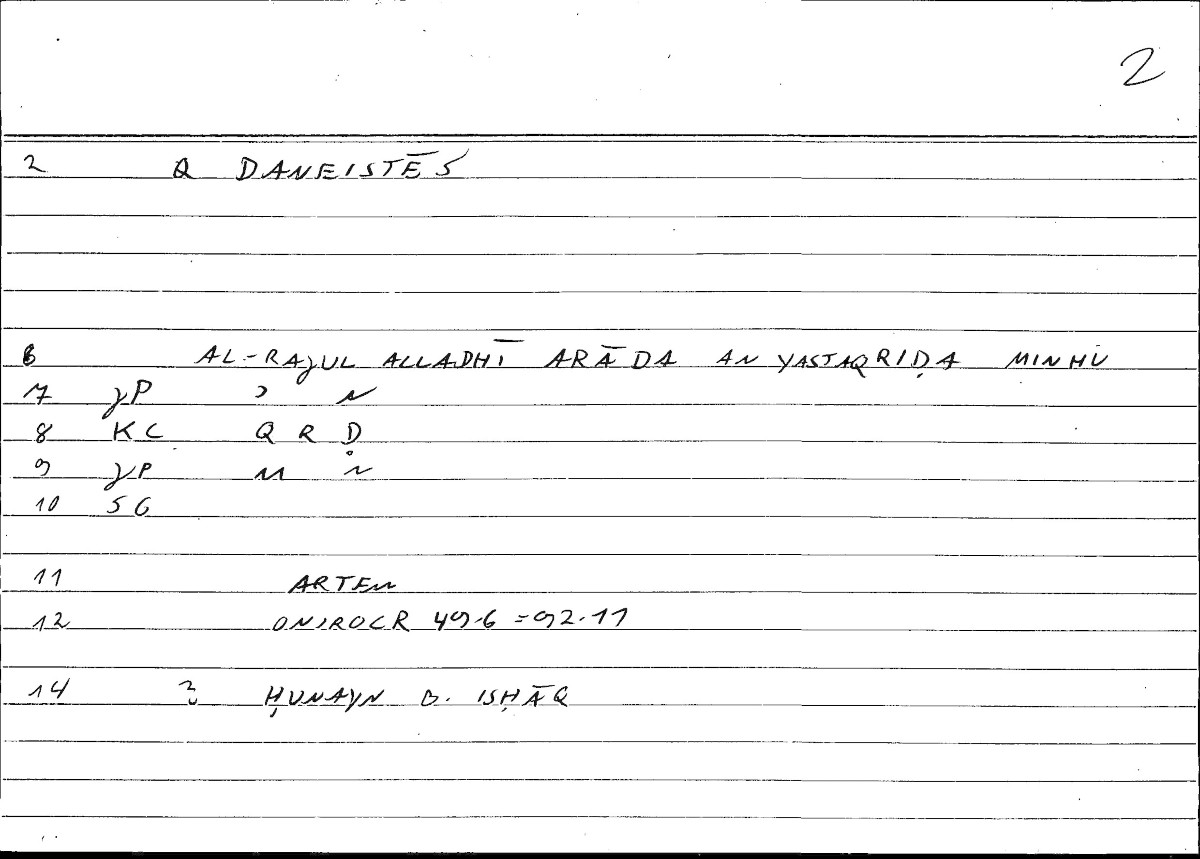 2
2 Q DANEISTĒS
6 AL-RAJUL ALLADHĪ ARĀDA AN YASTAQRIḌA MINHU
7 JP
8 KC Q R Ḍ
9 JP
10 SG
11 ARTEM
12 ONIROCR 49.6 = 92.11
14 ḤUNAYN B. ISḤĀQ